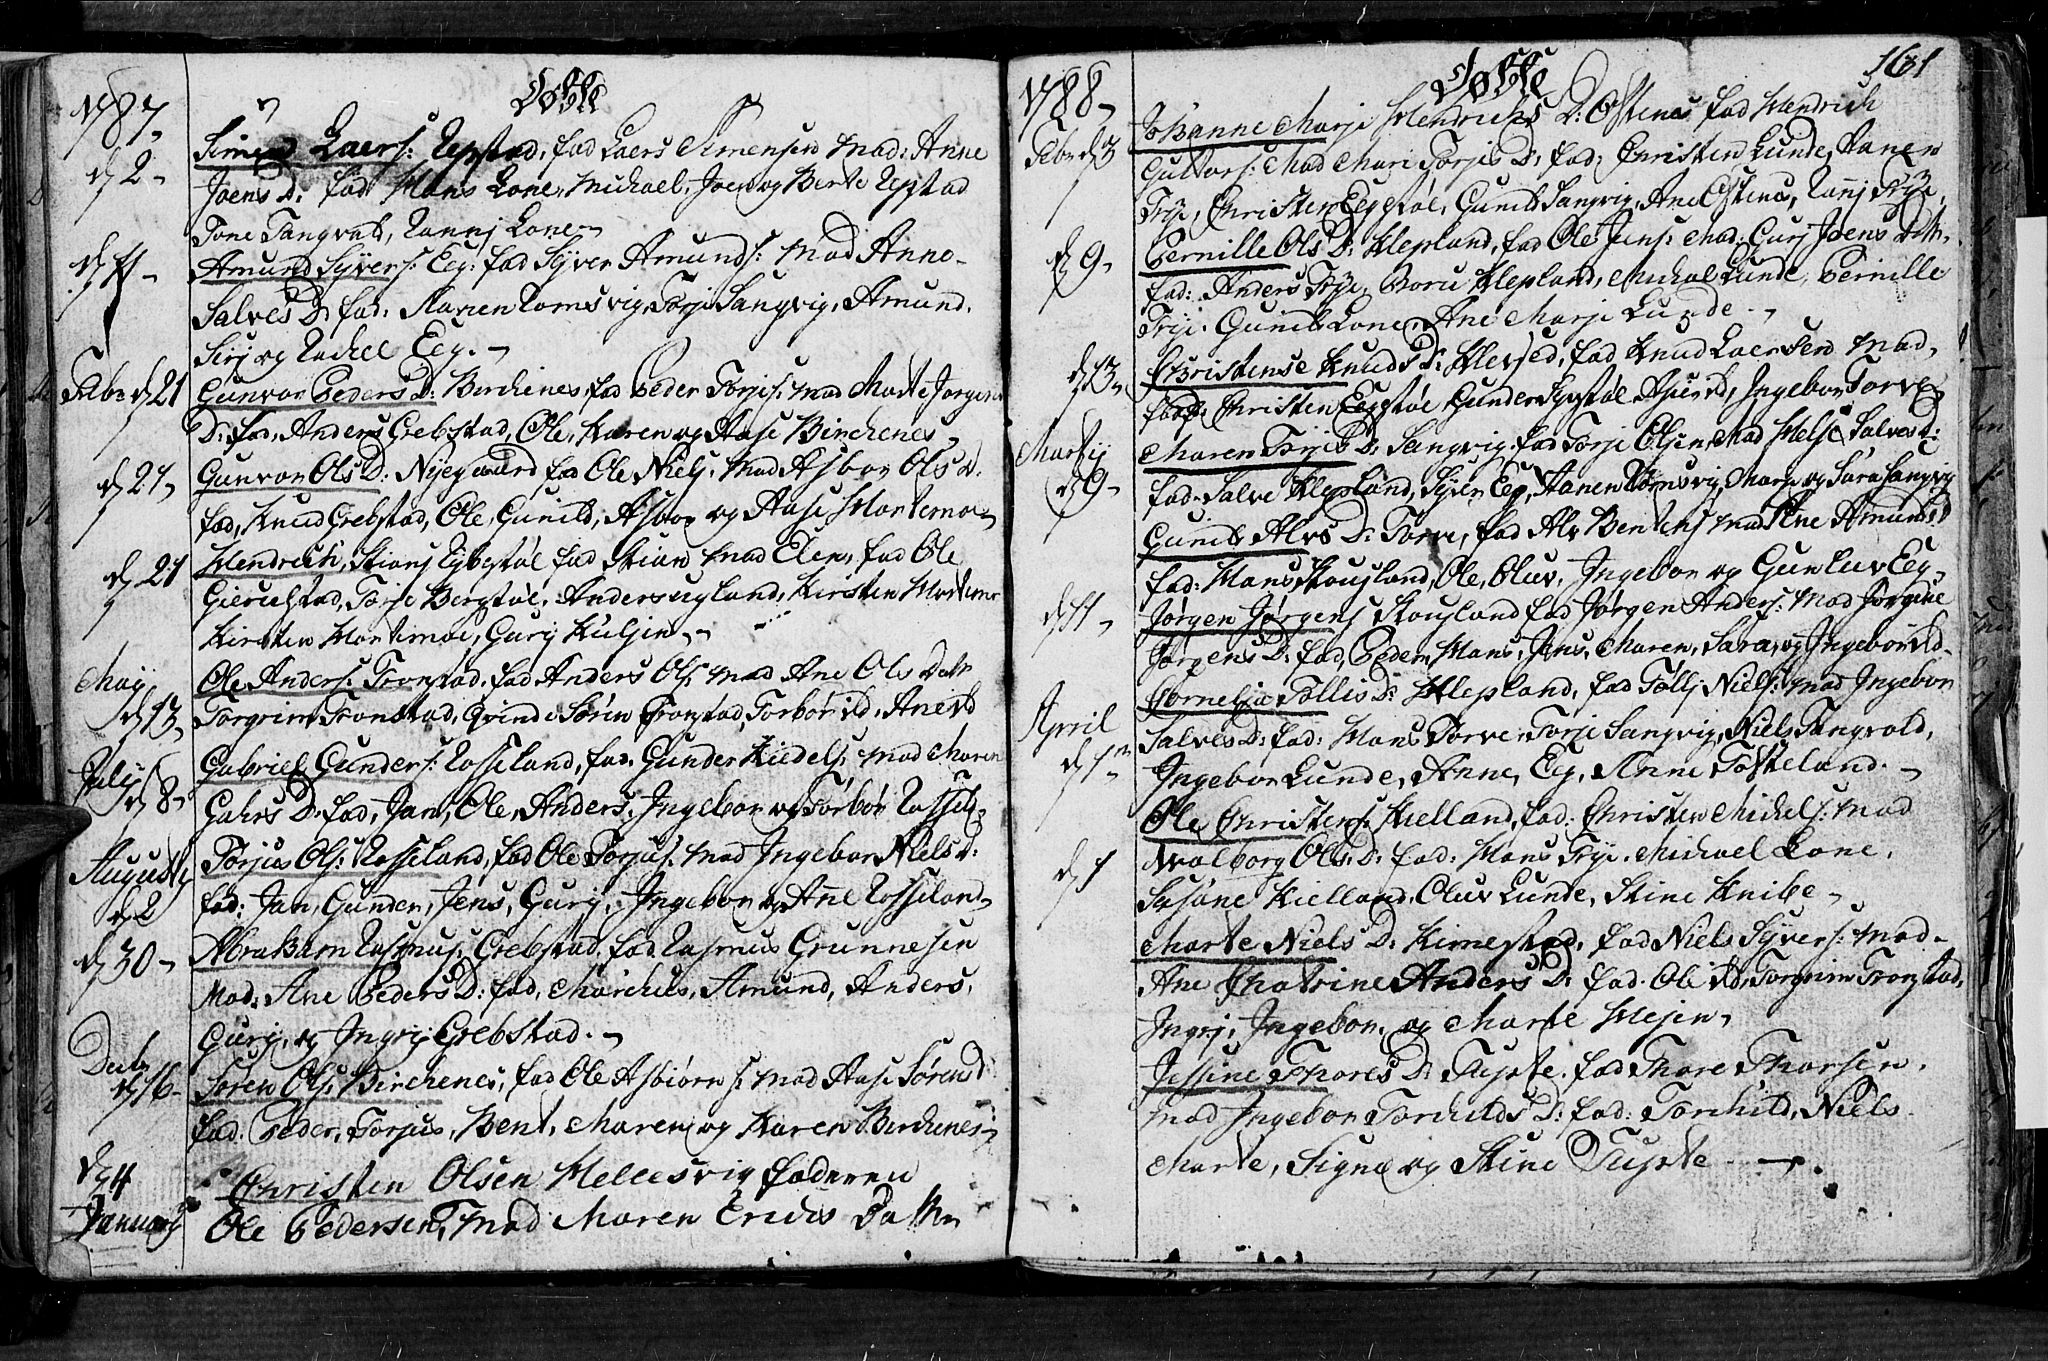 1787
Døbte
d 2
Simen Laers: Repstad, fad Laers Simensen Mad: Anne
Joens D: fad Hans Lone, Michael, Joen og Berte Repstad
Tone Tangvald, Ranni Lone
d 11
Amund Syvers: Eeg: fad Syver Amunds: Mad Anne
Salves D: fad: Aanen Romsvig, Torje Sangvig, Amund,
Siri og Rachel Eeg.
Febr d 21
Gunvor Peders D: Birchenes fad Peder Torjes: Mad Marte Jorgens
D: fad, Anders Grebstad, Ole, Karen og Aase Birchenes
d 27
Gunvor Ols D: Nyegaard fad Ole Niels: Mad Asbor Ols D:
fad, Knud Grebstad, Ole, Gunild, Asbor og Aase Mortemoe
d 21
Hendrich, Stians fad Stian Mad Elen, fad Ole
Gierulstad, Torje Bergstøl, Anders ugland, Kirsten
Kirsten Mortemoe, Guri Kulien
May
d 13
Ole Anders: Tronstad, fad Anders Ols: Mad Ane Ols Datt
Torgrim Tronstad, Qvinde Søren Tronstad, Torbor ibd, Ane ibd
July
d 8
Gabriel Gunders: Rosseland, fad. Gunder Kiedels: Mad Maren
Gahrs D: fad, Jan, Ole, Anders, Ingebor og Torbor Rosseld
Augusty
d 2
Torjus Ols: Rosseland, fad Ole Torjus: Mad Ingebor Niels D:
fad: Jan, Gunder, Jens, Guri, Ingebor og Ane Rosseland
d 30
Abraham Rasmus: Grebstad. fad. Rasmus Grunnesen
Mad: Ane Peders D: fad, Marchus, Amund, Anders,
Guri, og Ingri Grebstad.
Decbr
d 16
Søren Ols: Birchenes, fad Ole Asbiørns: Mad Aase Sørens D:
fad. Peder, Torjus, Bent, Maren og Karen Birchenes
d 4
January
Christen Olsen Hellesvig faderen
Ole Pedersen, Mad Maren Erichs Datter
1788
Døbte
161
Febr d 3
Johanne Marje Hendrichs D: Østenes fad Hendrich
Guttors: Mad Mari Torjes D: fad: Christen Lunde, Aanen
Trye, Christen Eegstøl, Gunild Sangvig, Ane Østenes, Ranj Trye,
d 9
Pernille Ols D: Klepland, fad Ole Jens: Mad: Guri Joens Datt.
fad: Anders Trye, Boru Klepland, Michal Lunde, Pernille
Trye, Gunild Lone, Ane Marje Lunde
d 13
Christense Knuds D: fad Knud Laersen Mad,
fad: Christen Eegstøl, Gunder Sigurd, Ingebor Torve
Martij
d 9
Maren Torjes D: Sangvig, fad Torje Olsen Mad Helje Salves D:
fad. Salve Klepland, Syver Eeg, Aanen Romsvig, Marje og Sara Sangvig
Gunild Alvs D: Torve, fad Alv Bentens Mad Ane Amunds D
fad: Hans Skougland, Ole, Oluv, Ingebor og Gunluv Eeg
d 11
Jørgen Jørgens Skougland fad Jørgen Anders: Mad Jørgine
Jørgens D: fad, Peder, Hans, Jens, Maren, Sara, og Ingebor ibd.
April
d 1
Cornelia Tollis D: Klepland, fad Tolli Niels: Mad Ingebor
Salves D: fad: Hans Torve, Torje Sangvig, Niels Tangvald,
Ingebor Lunde, Anne, Eeg, Anne Toskeland.
d 1
Ole Christens: Kielland, fad: Christen Michels: Mad
Walborg Ols D: fad: Hans Trye, Michael Lone,
Susane Kielland, Oluv Lunde, Stine Knibe
Marte Niels D: Kimestad, fad Niels Syvers: Mad
Ane Chatrine Anders D: fad. Ole ibd, Torgrim Tronstad,
Ingri, Ingebor, og Marte Hejen
Jessine Thores D: Tupte. fad Thore Thorsen,
Mad Ingebor Torchilds D: fad: Torchild, Niels
Marte, Signe og Stine Tupte